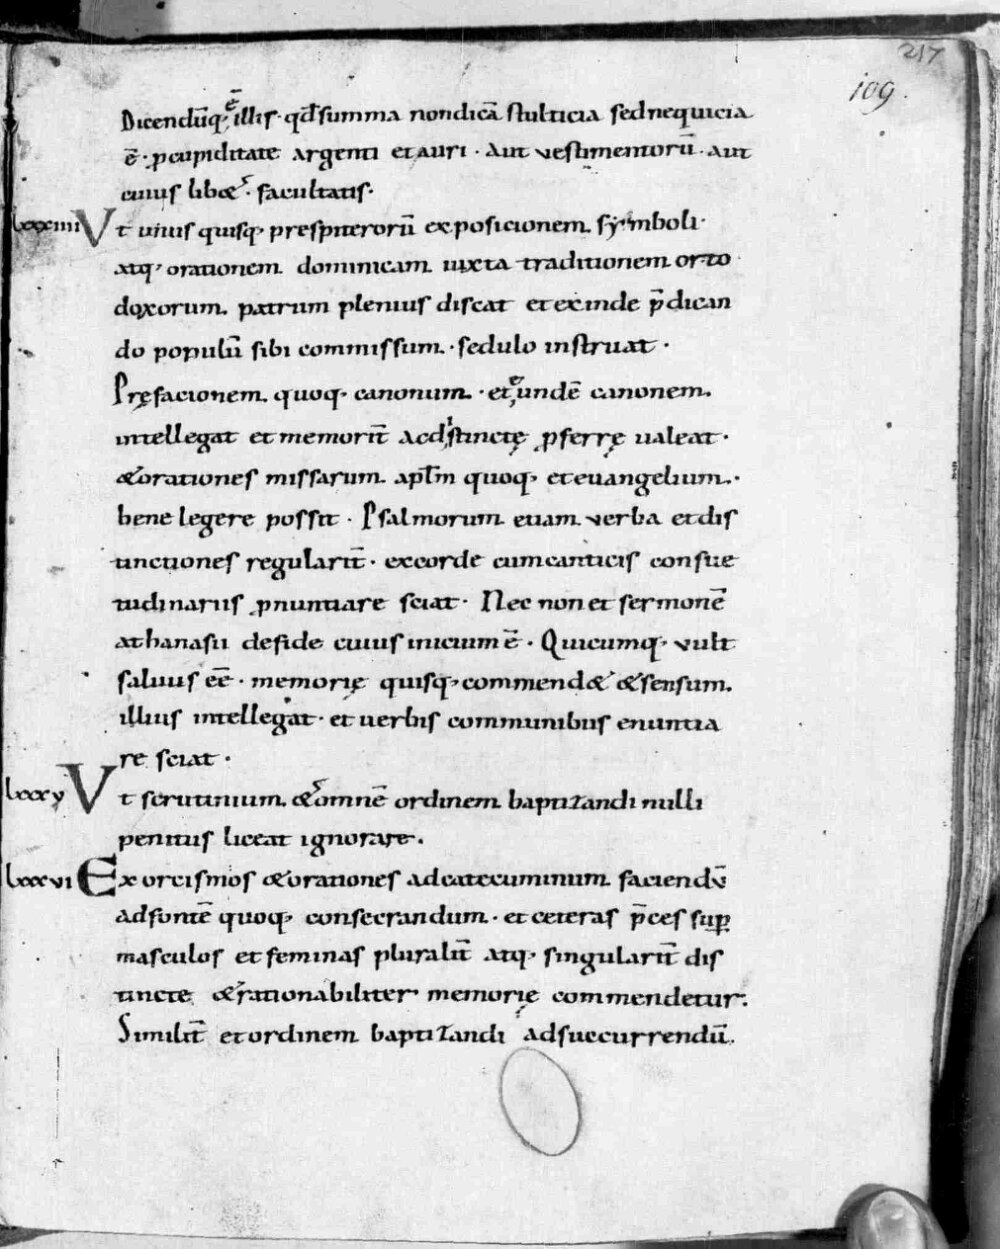 217
109.
Dicendūq; ē illis · qd̄ summa non dicā stulticia sed nequicia
ē · p cupiditate argenti et auri · aut vestimentorū · aut
cuius lib& · facultatis·
lxxxiiii Vt unus quisq; prespiterorū exposicionem symboli·
atq; orationem dominicam iuxta traditionem orto
doxorum patrum plenius discat et exinde p̄dican
do populū sibi commissum · sedulo instruat ·
Pręfacionem quoq; canonum · et eundē canonem
intellegat et memorit̄ ac distinctę pferrę ualeat ·
&orationes missarum apl̄m quoq; et euangelium ·
bene legere possit · Psalmorum etiam verba et dis
tinctiones regularit̄ · ex corde cum canticis consue
tudinariis pnuntiare sciat · Nec non et sermonē
athanasii de fide cuius inicium ē · Quicumq; vult
saluus eē · memorię quisq; commend& &sensum
illius intellegat · et uerbis communibus enuntia
re sciat ·
lxxxv Vt scrutinium &omnē ordinem baptizandi nulli
penitus liceat ignorare.
lxxxvi Exorcismos &orationes ad catecuminum faciendū
ad fontē quoq; consecrandum · et ceteras p̄ces sup
masculos et feminas pluralit̄ atq; singularit̄ dis
tincte &rationabiliter memorię commendetur·
Similit̄ et ordinem baptizandi ad succurrendū.